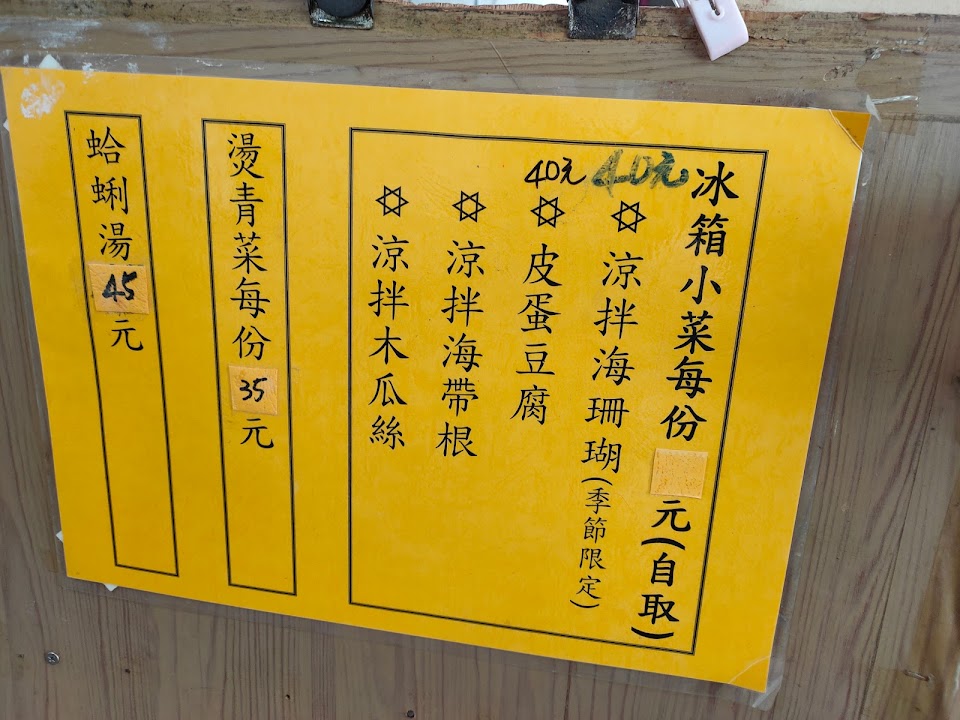 冰箱小菜每份 元(自取)
40元
✡涼拌海珊瑚(季節限定)
40元
✡皮蛋豆腐
✡涼拌海帶根
✡涼拌木瓜絲
燙青菜每份35元
蛤蜊湯45元